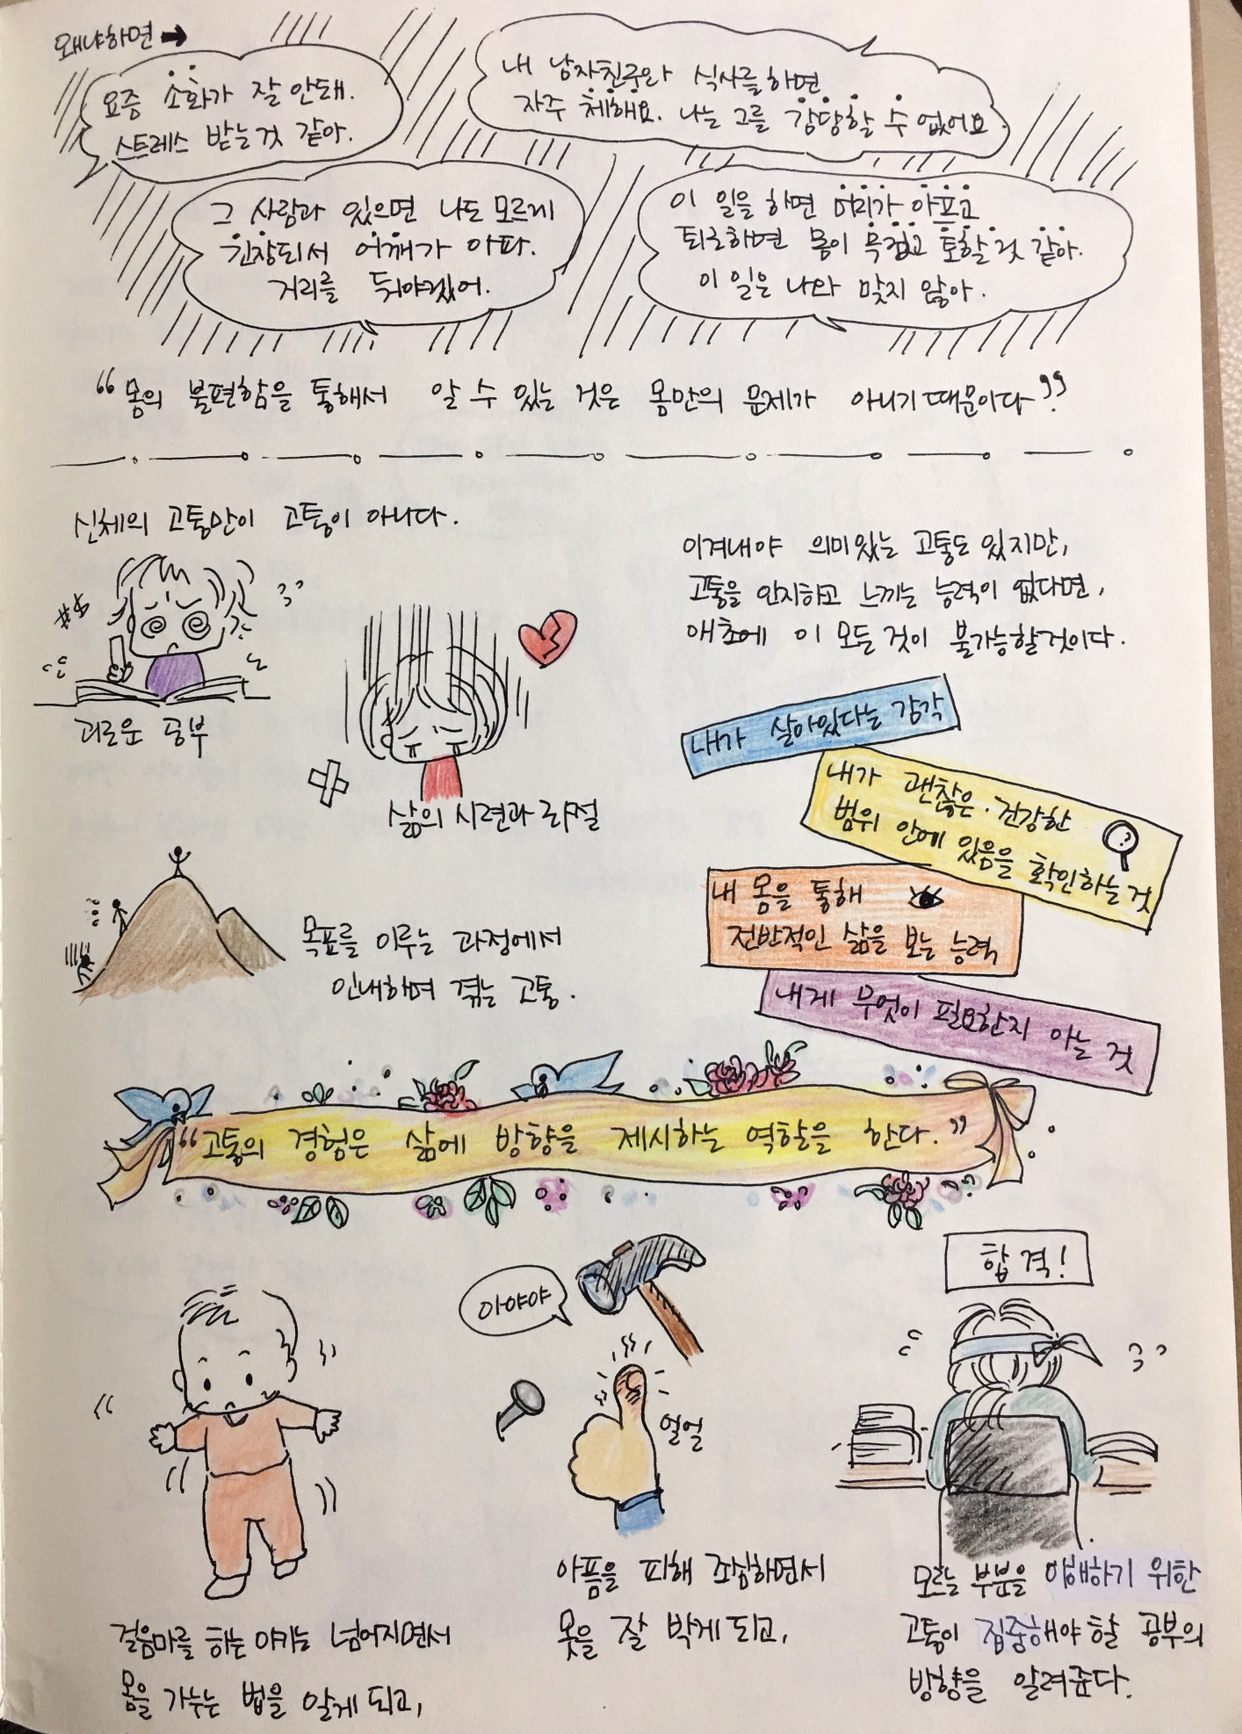 왜냐하면 →
요즘 소화가 잘 안돼.
스트레스 받는것 같아.
내 남자친구와 식사를 하면
자주 체해요. 나는 그를 감당할 수 없어요.
그 사람과 있으면 나도 모르게
긴장되서 어깨가 아파.
거리를 둬야겠어.
이 일을 하면 머리가 아프고
퇴근하면 몸이 무겁고 토할 것 같아.
이 일은 나와 맞지 않아.
“몸의 불편함을 통해서 알 수 있는 것은 몸만의 문제가 아니기 때문이다.”
신체의 고통만이 고통이 아니다.
괴로운 공부
삶의 시련과 좌절
목표를 이루는 과정에서
인내하며 겪는 고통.
이겨내야 의미있는 고통도 있지만,
고통을 인지하고 느끼는 능력이 없다면,
애초에 이 모든 것이 불가능할것이다.
내가 살아있다는 감각
내가 괜찮은·건강한
범위 안에 있음을 확인하는 것
내 몸을 통해
전반적인 삶을 보는 능력
내게 무엇이 필요한지 아는 것
“고통의 경험은 삶에 방향을 제시하는 역할을 한다.”
아야야
얼얼
합격!
걸음마를 하는 아가는 넘어지면서
몸을 가누는 법을 알게 되고,
아픔을 피해 조심하면서
못을 잘 박게 되고,
모르는 부분을 이해하기 위한
고통이 집중해야 할 공부의
방향을 알려준다.